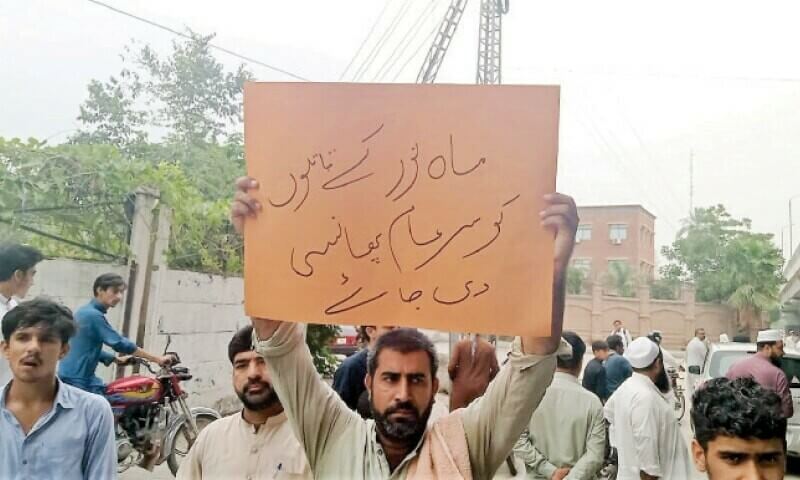 ماہ نور کے قاتلوں
کو سرعام پھانسی
دی جائے